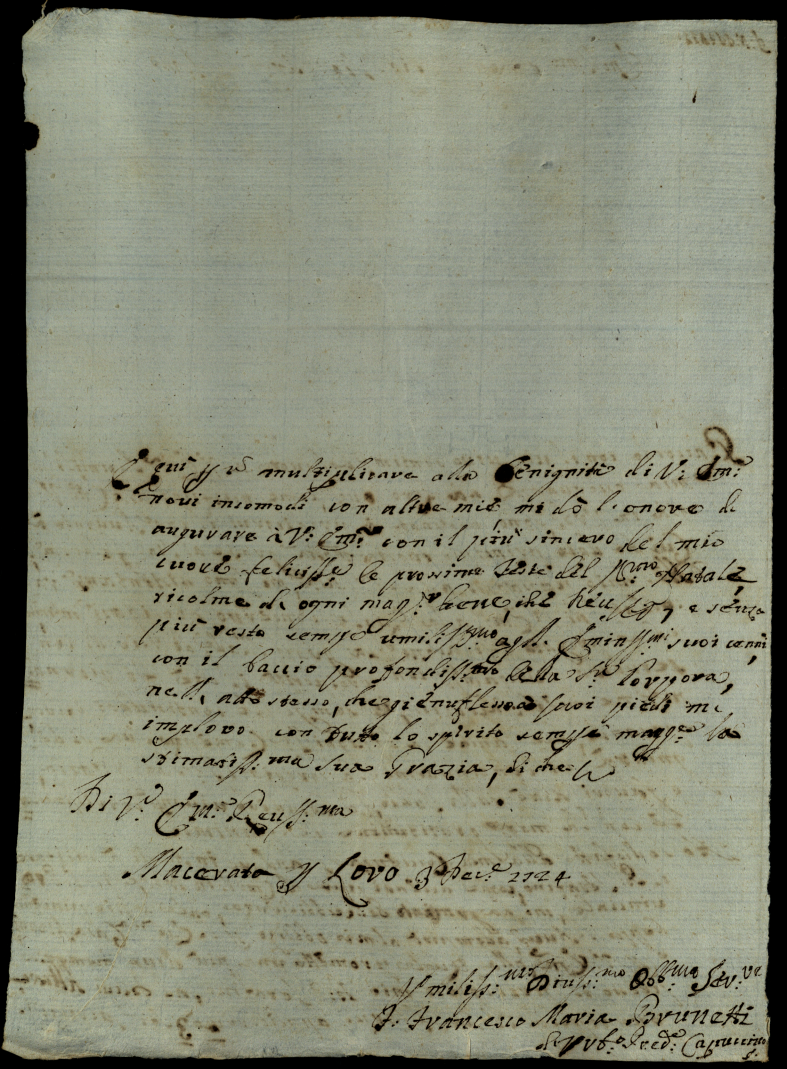 multiplicare alla Benignità di V: Em:
novi incomodi con altre mie, mi dò l'onore di
augurare à V: Em: con il più sincero del mio
cuore feliciss: le prossime Feste del Natale,
ricolme di ogni mag: bene, che e senza
più resto sempre umilissmo suoi cenni,
con il baccio profondissimo della Porpora,
nell'atto stesso, che genuflesso à suoi piedi me
imploro con tutto lo spirito sempre magg:e la
stimatiss:ma sua Grazia, di che
Di V: Em: Reuss:ma
Macerata Loro 3 Dec: 1724
Umiliss:mo Diuss:mo Obb:mo Ser:re
F. Francesco Maria Brunetti
Pred:e Capuccino